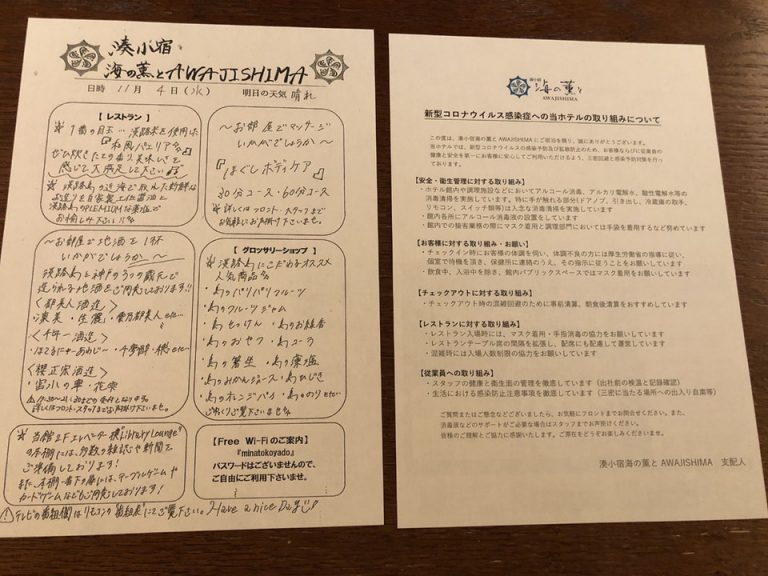 湊小宿
海の薫とAWAJISHIMA
日時 11月 4日(水) 明日の天気 晴れ
【レストラン】
淡路米を使用した
『和風パエリア』を
ぜひ炊きたての香り、美味しさを
感じて大満足して下さい
～お部屋でマッサージ
いかがでしょうか～
『ほぐしボディケア』
30分コース・60分コース
詳しくはフロント・スタッフまで
お気軽にお声掛け下さいませ。
～お部屋で地酒を1杯
いかがでしょうか～
淡路島と神戸の
〈都美人酒造〉
〈千年一酒造〉
〈櫻正宗酒造〉
宮水の華・花乘
【グロッサリーショップ】
淡路島にこだわるオススメ
人気商品
・島のパリパリフルーツ
・島のフルーツジャム
・島せっけん ・島のお線香
・島のおやつ ・島コーラ
・島の箸生 ・島の藻塩
・島のみかんジュース・島ひじき
・島のオレンジパイ ・島ののり etc…
ご覧下さいませ
当館2Fエレベーター横"Library Lounge"
の本棚には、多数の雑誌や新聞を
ご準備しております!
また、本棚一番下の扉には、テーブルゲームや
カードゲームなどもご用意しております!
【Free Wi-Fiのご案内】
『minatokoyado』
パスワードはございませんので、
ご自由にご利用下さいませ。
テレビの番組欄はリモコンの番組表にてご覧下さい。Have a nice Day
湊小宿
海の薫と
AWAJISHIMA
新型コロナウイルス感染症への当ホテルの取り組みについて
この度は、湊小宿海の薫と AWAJISHIMA にご宿泊を賜り、誠にありがとうございます。
当ホテルでは、新型コロナウイルスの感染予防及び拡散防止のため、お客様ならびに従業員の
健康と安全を第一にお客様に安心してご利用いただけるよう、三密回避と感染予防対策を行っ
ております。
【安全・衛生管理に対する取り組み】
・ホテル館内や調理施設などにおいてアルコール消毒、アルカリ電解水、酸性電解水等の
消毒清掃を実施しています。特に手が触れる部分(ドアノブ、引き出し、冷蔵庫の取手、
リモコン、スイッチ類等)は入念な消毒清掃を実施しています
・館内各所にアルコール消毒液の設置をしています
・館内での接客業務の際にマスク着用と調理部門においては手袋を着用するなど努めています
【お客様に対する取り組み・お願い】
・チェックイン時にお客様の体調を伺い、体調不良の方には厚生労働省の指導に従い、
個室で待機を頂き、保健所に連絡のうえ、その指示に従うことをお願いしています
・飲食中、入浴中を除き、館内パブリックスペースではマスク着用をお願いしています
【チェックアウトに対する取り組み】
・チェックアウト時の混雑回避のために事前清算、朝食後清算をおすすめしています
【レストランに対する取り組み】
・レストラン入場時には、マスク着用・手指消毒の協力をお願いしています
・レストランテーブル席の間隔を拡張し、配席にも配慮して運営しています
・混雑時には入場人数制限の協力をお願いしています
【従業員への取り組み】
・スタッフの健康と衛生面の管理を徹底しています(出社前の検温と記録確認)
・生活における感染防止注意事項を徹底しています(三密に当たる場所への出入り自粛等)
ご質問またはご懸念などございましたら、お気軽にフロントまでお問合せください。また、
消毒液などのサポートがご必要な場合はスタッフまでお声掛けください。
皆様のご理解とご協力に感謝いたします。ご滞在をどうぞお楽しみくださいませ。
湊小宿海の薫と AWAJISHIMA 支配人